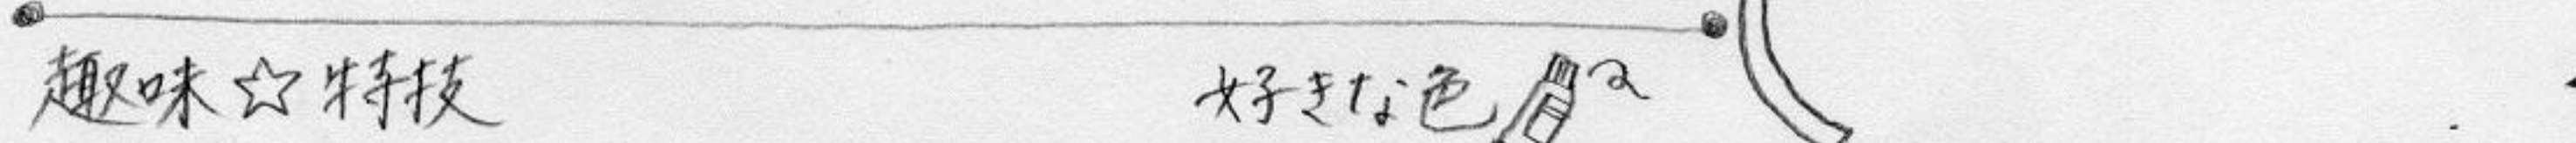 趣味☆特技
好きな色